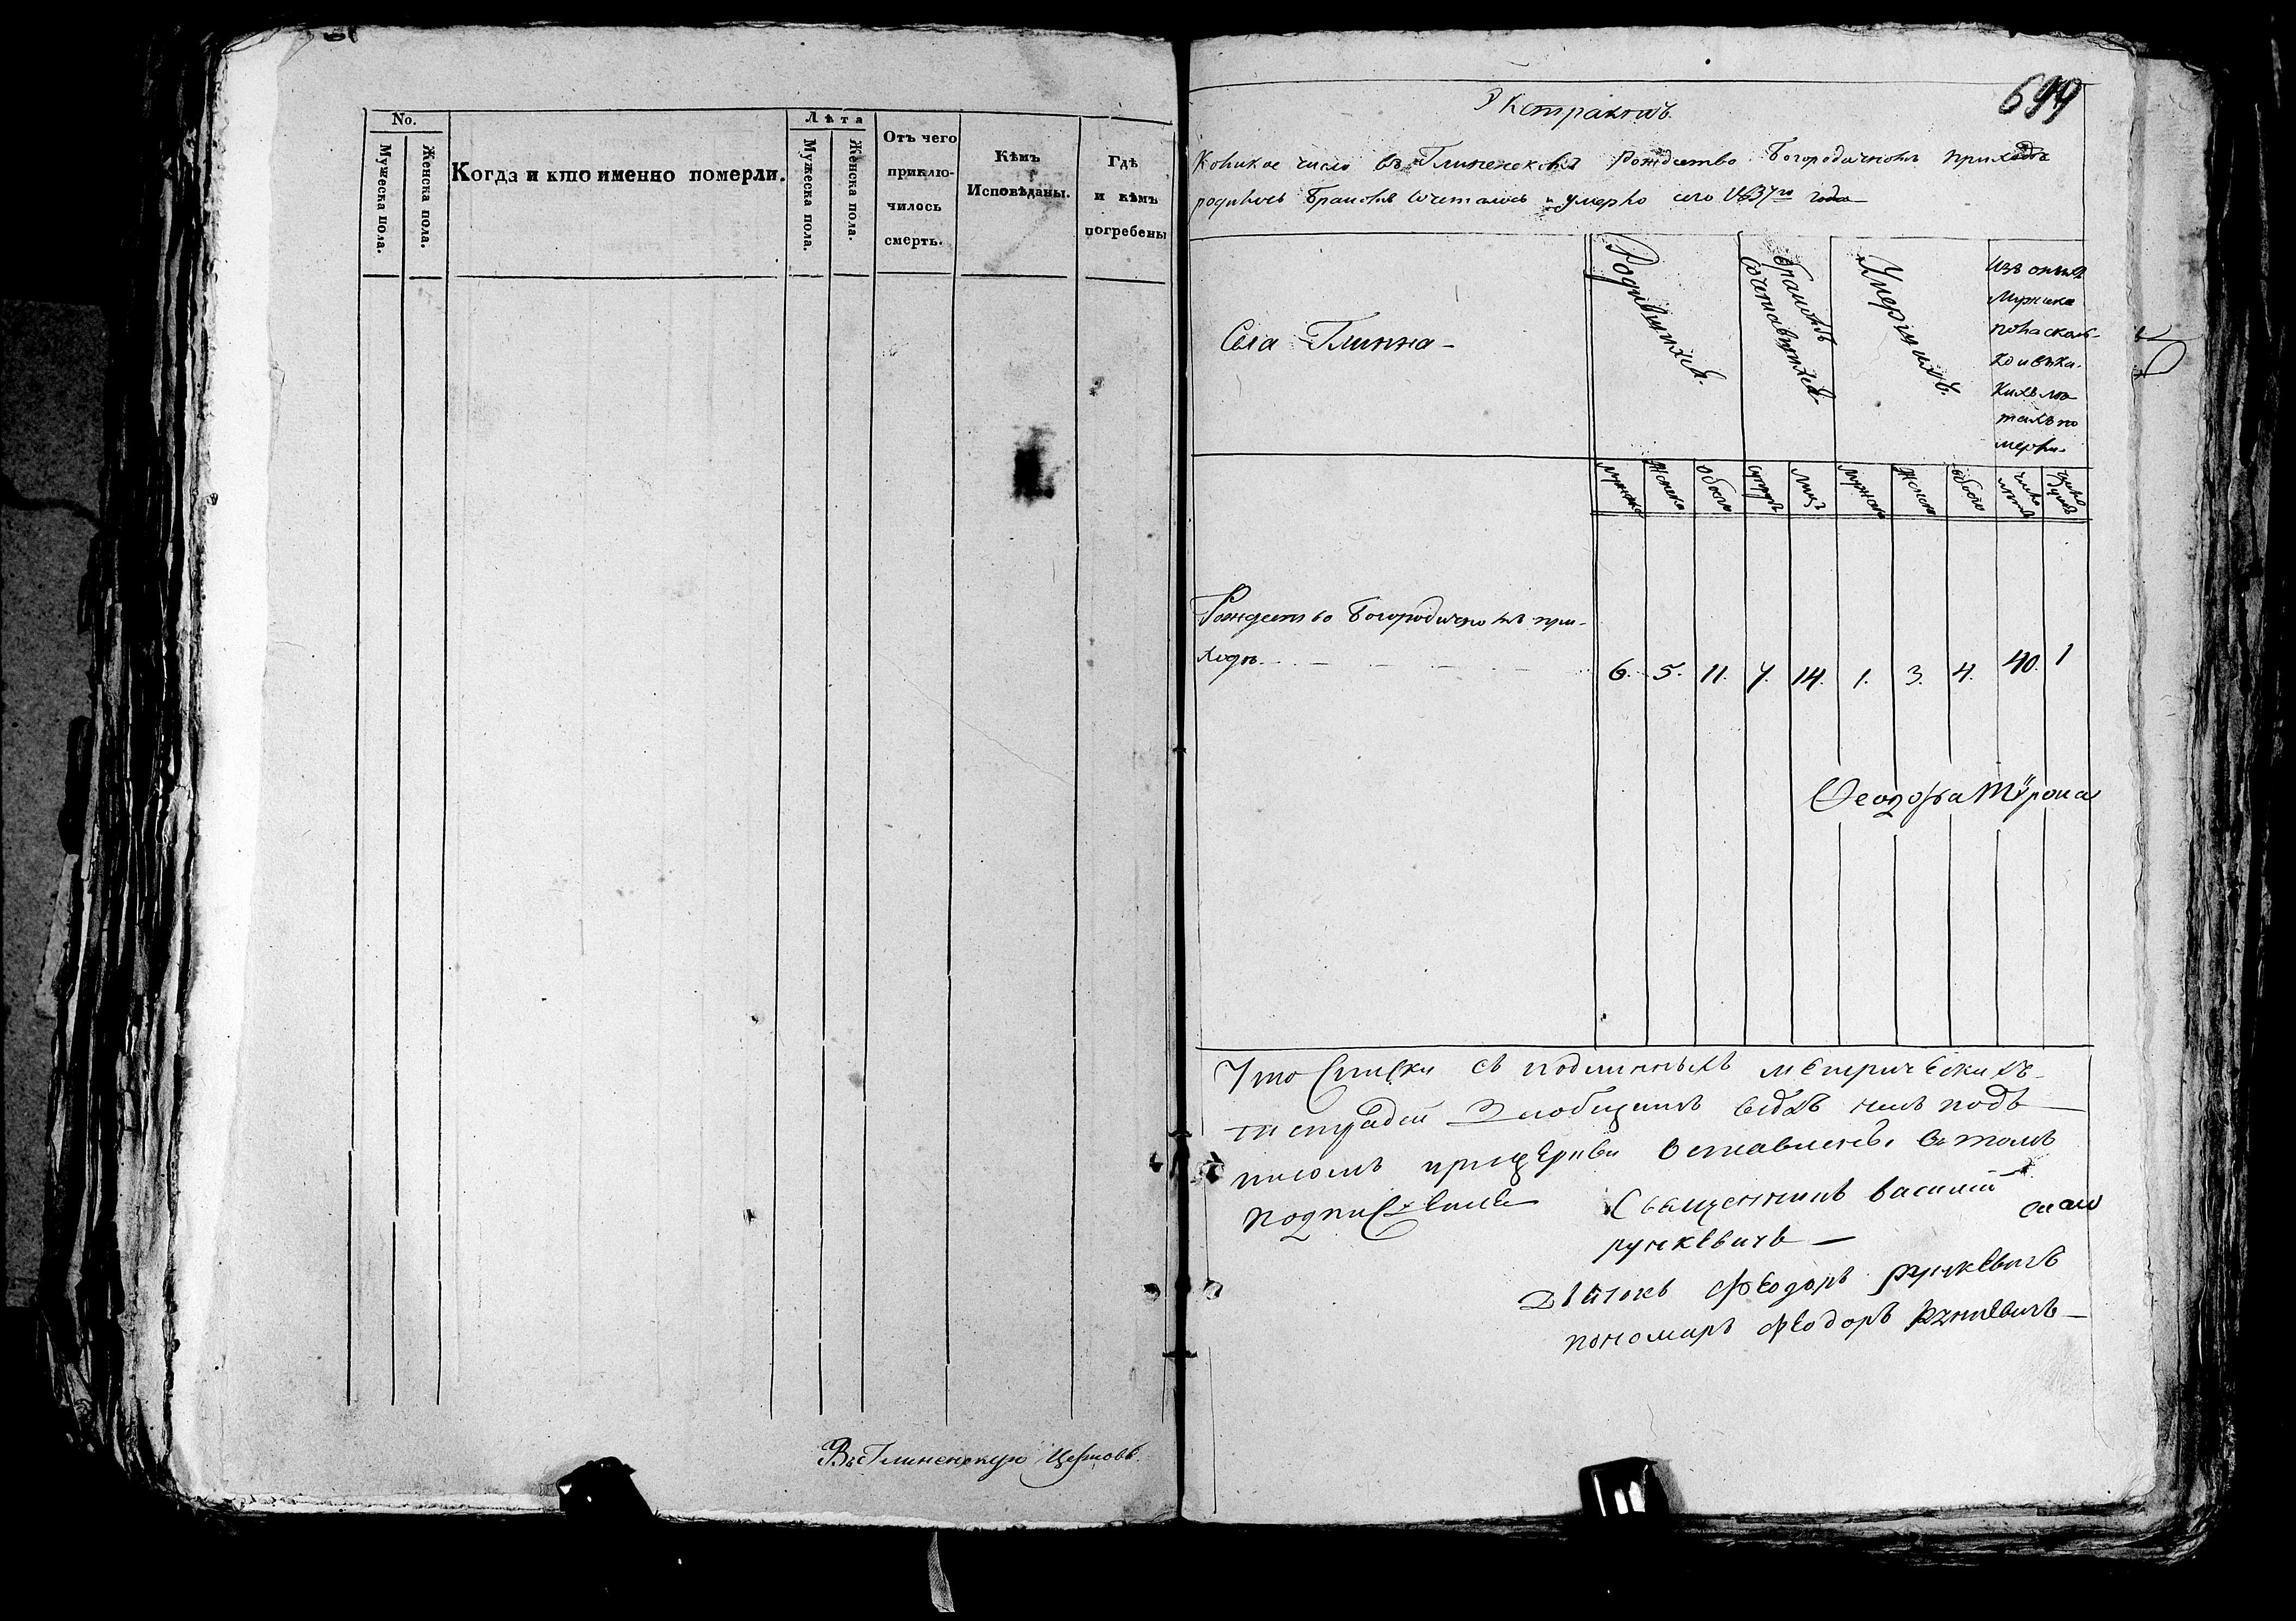 No.
Мужеска пола.
Женска пола.
Когда и кто именно померли.
Лѣта
Мужеска пола.
Женска пола.
Отъ чего
приклю-
чилось
смерть.
Кѣмъ
Исповѣданы.
Гдѣ
и кѣмъ
погребены
Въ Глиненскую Церковь.
Экстрактъ
Коликое число въ Глиненской Рождество Богородичномъ приходѣ
родилось бракомъ сочеталось и умерло сего 1837го года
Села Глинна -
Родившихся.
бракомъ
сочетавшихся
Умершихъ.
Изъ оныхъ
Мужска
пола сколь-
ко и въ ка-
кихъ лѣ-
тахъ по
мерли.
Мужска
Женска
Обоего
супругъ
лицъ
Мужска
Женска
обоего
число
лѣтъ
число
душъ
Рождество Богородичномъ при-
ходѣ
6. 5. 11. 7. 14. 1. 3. 4. 40. 1
Что списки съ подлинныхъ метрическихъ
тетрадей
писомъ при церкви оставленъ, въ томъ
подписуемся Священникъ василий
рункевичъ —
дьячокъ феодоръ рункевичъ
пономарь феодоръ рункевичъ —